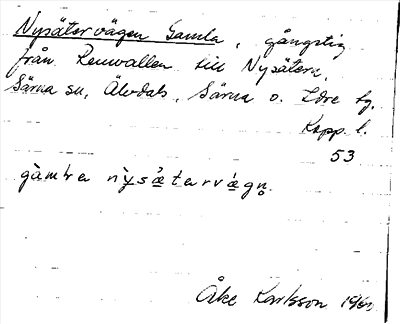 Nysätervägen Gamla, gångstig
från Renvallen till Nysätern,
Särna sn, Älvdals, Särna o. Idre tg,
Kopp. l.
53
gàmḷa nỳsæ̀tarvǽgn̥.
Åke Karlsson 1961